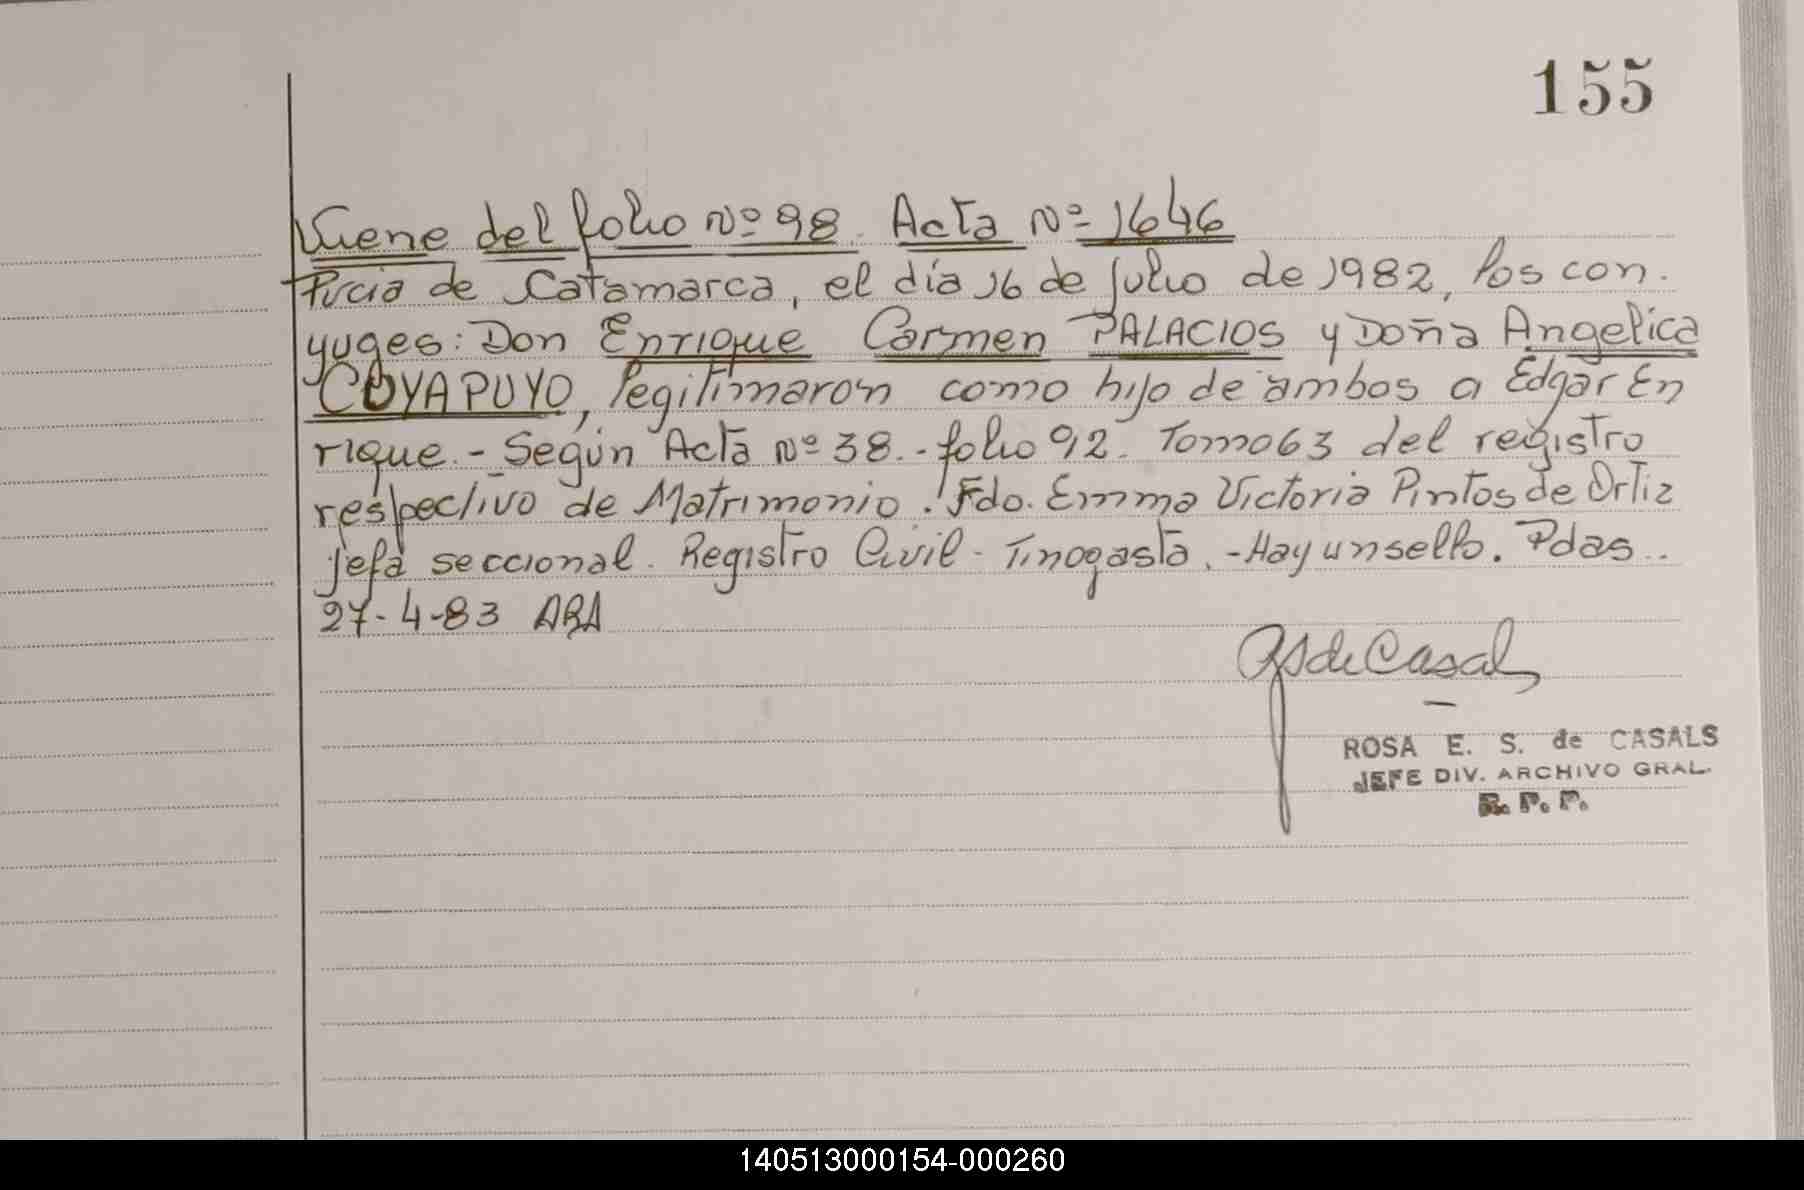 155
Viene del folio Nº 98. Acta Nº 1646
Pvcia de Catamarca, el día 16 de Julio de 1982, los con.
yuges: Don Enrique Carmen PALACIOS y Doña Angelica
COYAPUYO, legitimaron como hijo de ambos a Edgar En
rique.- Según Acta Nº 38.- folio 92. Tomo 63 del registro
respectivo de Matrimonio. Fdo. Emma Victoria Pintos de Ortiz
Jefa seccional. Registro Civil - Tinogasta.- Hay un sello. Pdas..
27-4-83 ABA
ROSA E. S. de CASALS
JEFE DIV. ARCHIVO GRAL.
R. P. P.
140513000154-000260